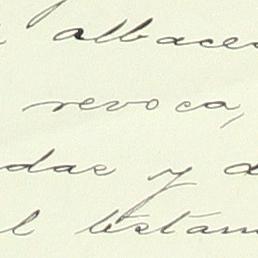 albacea
revoca,
das y d
l testam